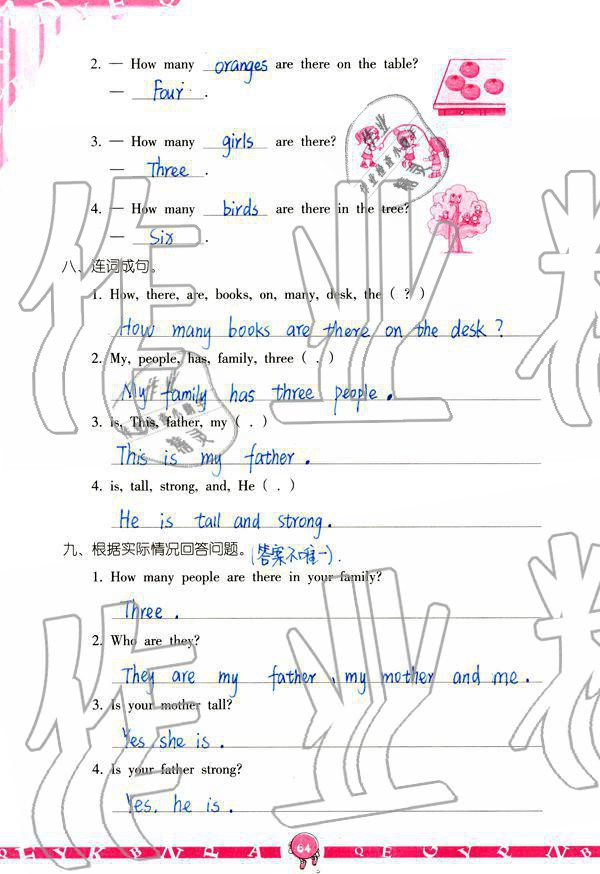 2. — How many oranges are there on the table?
— Four .
3. — How many girls are there?
— Three .
4. — How many birds are there in the tree?
— Six .
八、连词成句。
1. How, there, are, books, on, many, desk, the ( ? )
How many books are there on the desk ?
2. My, people, has, family, three ( . )
My family has three people .
3. is, This, father, my ( . )
This is my father .
4. is, tall, strong, and, He ( . )
He is tall and strong.
九、根据实际情况回答问题。(答案不唯一).
1. How many people are there in your family?
Three .
2. Who are they?
They are my father , my mother and me .
3. Is your mother tall?
Yes she is .
4. Is your father strong?
Yes, he is .
64
作业
作业